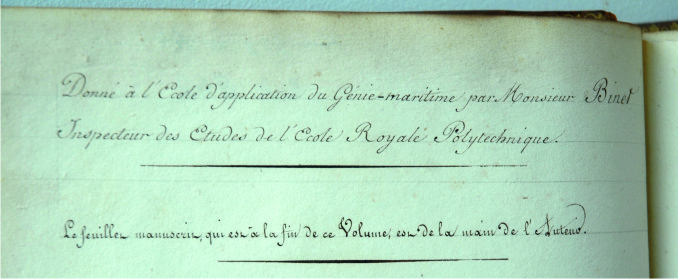 Donné à l'Ecole d'application du Génie-maritime par Monsieur Binet
Inspecteur des Etudes de l'Ecole Royale Polytechnique.
Le feuillet manuscrit, qui est à la fin de ce Volume, est de la main de l'Auteur.